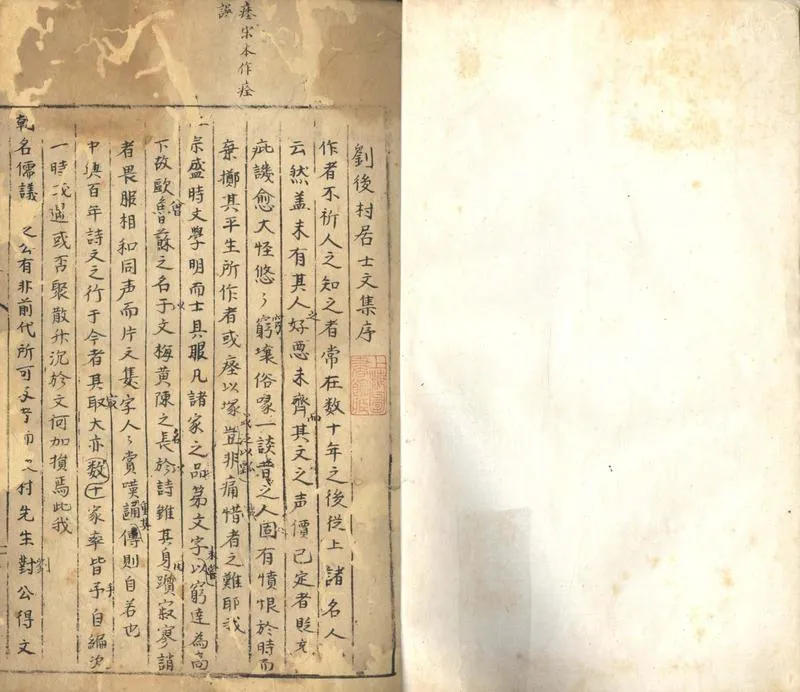 痊宋本作痊
誤
劉後村居士文集序
作者不祈人之知之者常在数十年之後從上諸名人
云然盖未有其人好悪未齊其文之声價已定者貶充
疵譏愈大怪悠〻窮壤俗喙一談昔之人固有憤恨於時而
棄擲其平生所作者或瘞以塚豈非痛惜者之難耶我
宗盛時文學明而士具服凡諸家之品第文字以窮達為高
下故歐曾蘇之名于文梅黄陳之長於詩雖其身躓寂寥誚
者畏服相和同声而片文隻字人〻賞嘆誦傳則自若也
中興百年詩文之行于今者其取大亦数十家率皆手自編次
一時或遇或否聚散升沉於文何加損焉此我
乾名儒議 之公有非前代所可 村先生對公得文